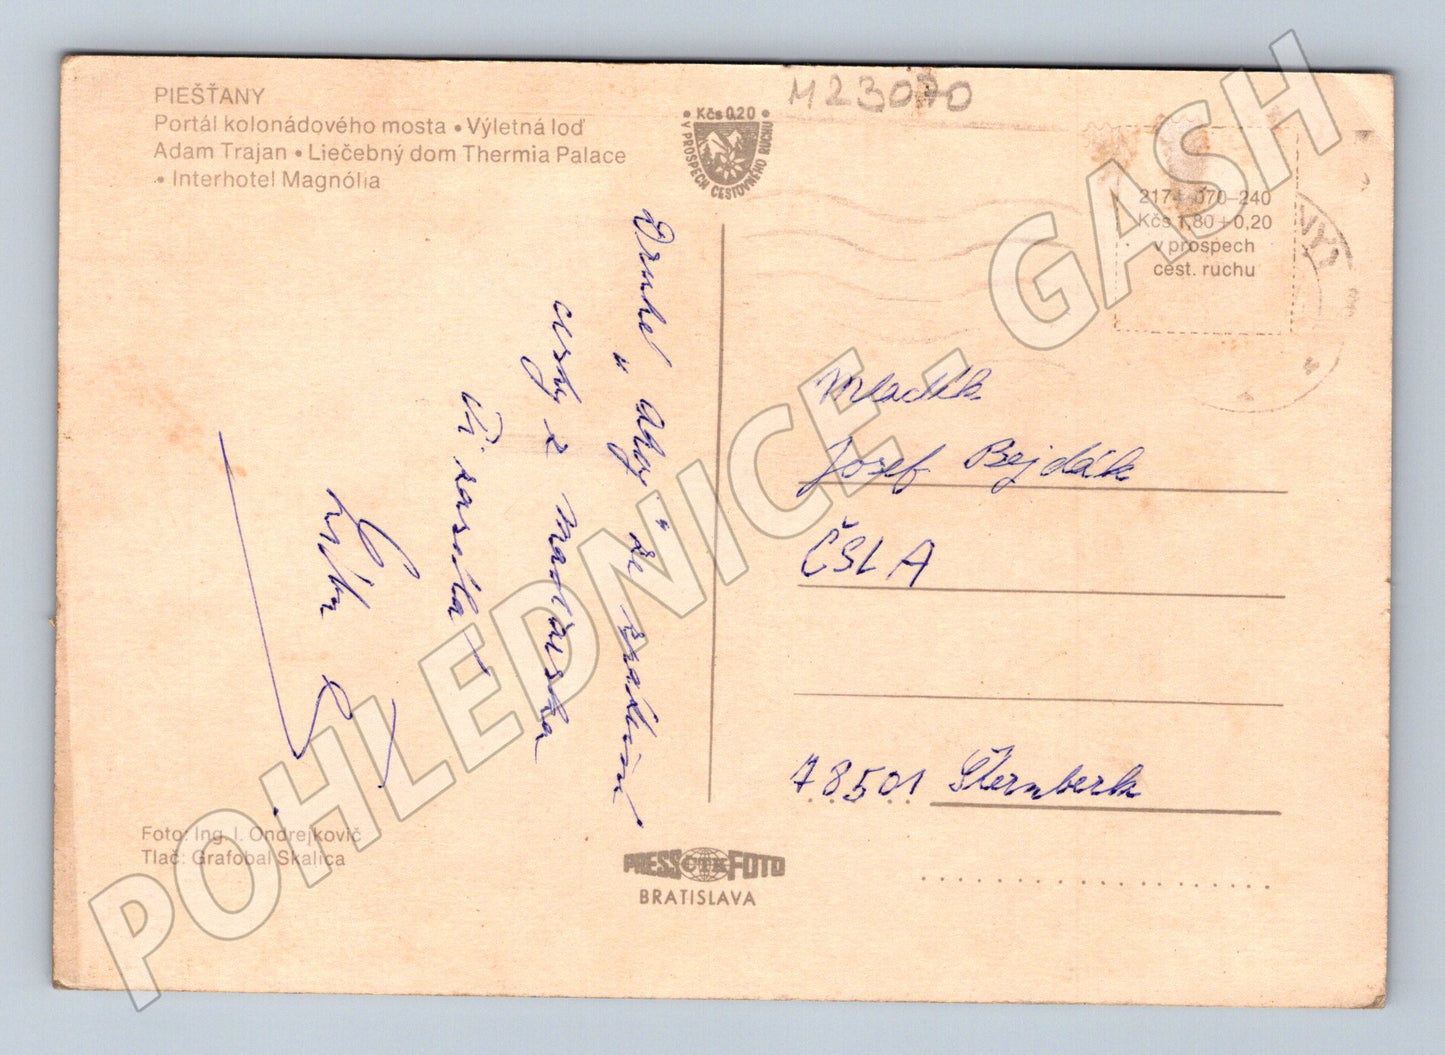 PIEŠŤANY
Portál kolonádového mosta • Výletná loď
Adam Trajan • Liečebný dom Thermia Palace
• Interhotel Magnólia
M23070
• Kčs 0,20 •
V PROSPECH CESTOVNÉHO RUCHU
2174-070-240
Kčs 1,80+0,20
v prospech
cest. ruchu
Druhé „Ahoj“ ze zpáteční
cesty z Maďarska
Ti zasílá
Mladík
Josef Bejdák
ČSLA
78501 Šternberk
Foto: Ing. I. Ondrejkovič
Tlač: Grafobal Skalica
PRESS ČTK FOTO
BRATISLAVA
POHLEDNICE - GASH